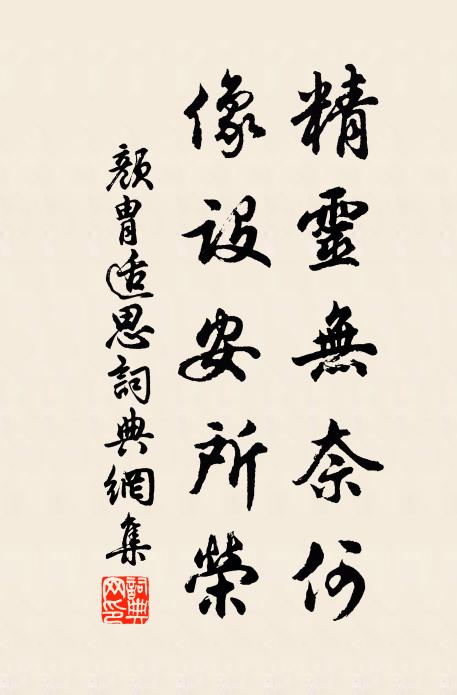 精靈無奈何
像設安所榮
顏胄适思詞典網集
詞典
网印